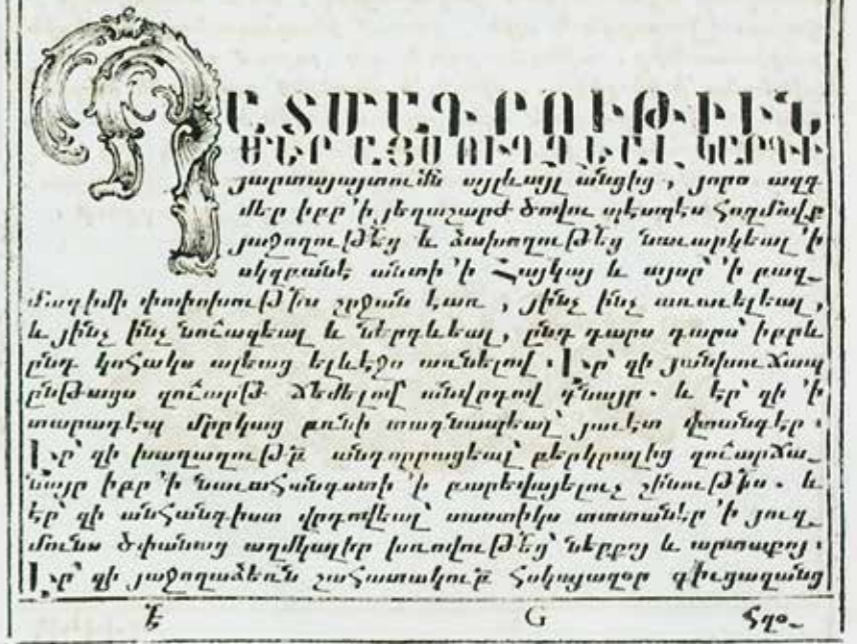 ՊԱՏՄԱԳՐՈՒԹԻՒՆ
ՄԵՐ ԱՅՍ ՈՒՂՂԵԱԼ ԿԱՐԳԻ
յարտայայտումն այլևայլ անցից, յորս ազգ
մեր իբր ՚ի յեղաշարժ ծովու պէսպէս հողմովք
յաջողութեց և ձախողութեց նաւարկեալ ՚ի
սկզբանէ անտի ՚ի Հայկայ և այսր՝ ՚ի բազ֊
մադիմի փոփոխութիս շրջան էառ, յինչ ինչ առաւելեալ,
և յինչ ինչ նուազեալ և ներգևեալ, ընդ դարս դարս՝ իբրև
ընդ կոհակս ալեաց ելևէջս առնելով. Էր՝ զի յանխուճապ
ընթացս զուարթ ճեմելով անվրդով գնայր. և էր՝ զի ՚ի
տարադէպ մրրկաց բռնի տագնապեալ՝ յաւէտ վտանգէր.
Էր՝ զի խաղաղութբ անդորրացեալ՝ բերկրալից զուարճա֊
նայր իբր ՚ի նաւահանգստի ՚ի բարեվայելուչ շինութիս. և
էր՝ զի անհանգիստ վրդովեալ՝ սաստիկս տատանէր ՚ի յուզ֊
մունս ծփանաց աղմկալիր խռովութեց՝ ներքոյ և արտաքոյ.
Էր՝ զի յաջողաձեռն շահատակութբ հսկայազօր դիւցազանց
Է G հզօ֊